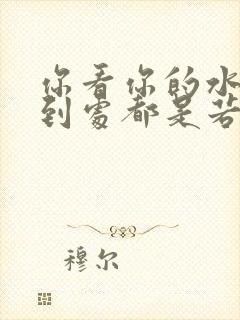 你看你的水
到處都是若
穆尔